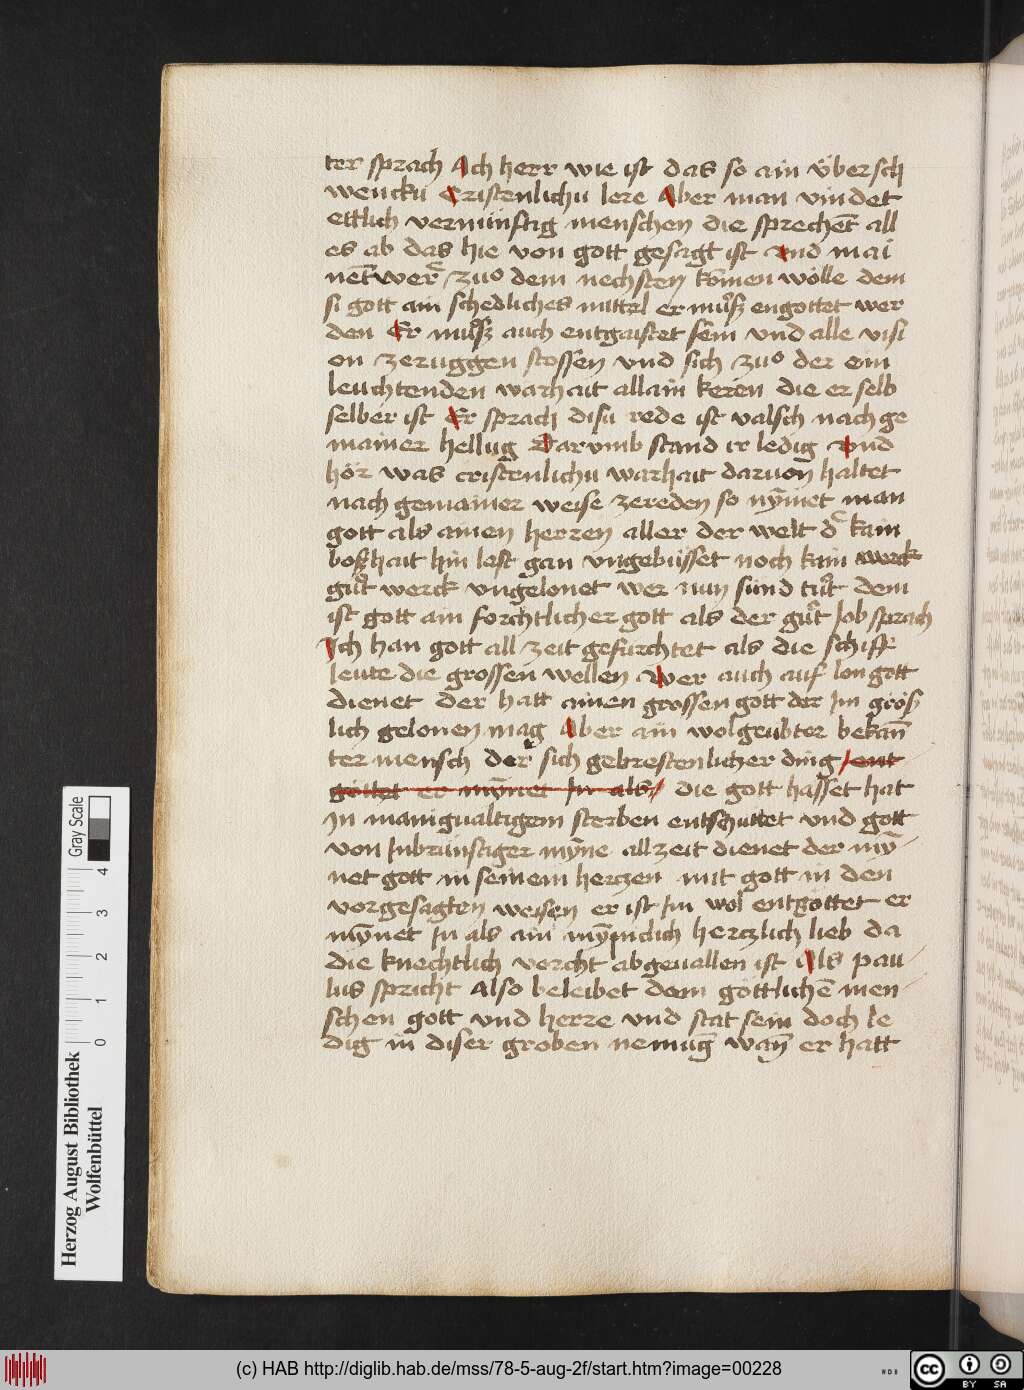 ter sprach Ach herr wie ist das so ain übersch
wencku Cristenlichu lere Aber man vindet
ettlich vernünftig menschen die sprechēt all
es ab das hie von gott gesagt ist Und mai
nēt wer zuo dem nechsten komen wölle dem
si gott ain schedliches mittel er můsz engottet wer
den Er můsz auch entgaistet sein vnd alle visi
on zeruggen stossen vnd sich zuo der ein
leuchtenden warhait allain keren die er selb
selber ist Er sprach disu rede ist valsch nach ge
mainer hellug Darumb stand ir ledig Und
hör was cristenlichu warhait daruon haltet
nach gemainer weise zereden so nÿmet man
gott als ainen herren aller der welt d' kain
boszhait hin lest gan vngebüsset noch kain werck
gůt werck vngelonet wer nun sünd tůt dem
ist gott ain forchtlicher gott als der gůt Job sprach
Ich han gott all zeit gefürchtet als die schiff
leute die grossen wellen Wer auch auf lon gott
dienet der hatt ainen grossen gott der Im grös
lich gelonen mag Aber ain wolgeübter bekañ
ter mensch der sich gebrestenlicher ding / ent
göttet er mÿnet In als / die gott hasset hat
In manigualtigem sterben entschüttet vnd gott
von Inbrünstiger mÿne allzeit dienet der mÿ
net gott in seinem hertzen nit gott in den
vorgesagten weisen er ist Im wol entgöttet er
mÿnet In als ain mÿnclich hertzlich lieb da
die knechtlich vorcht abgeuallen ist Als pau
lus spricht Also beleibet dem göttlichē men
schen gott vnd herre vnd stat sein doch le
dig in diser groben nemūg wañ er hatt
Gray Scale
0 1 2 3 4
Herzog August Bibliothek
Wolfenbüttel
(c) HAB http://diglib.hab.de/mss/78-5-aug-2f/start.htm?image=00228
cc BY SA